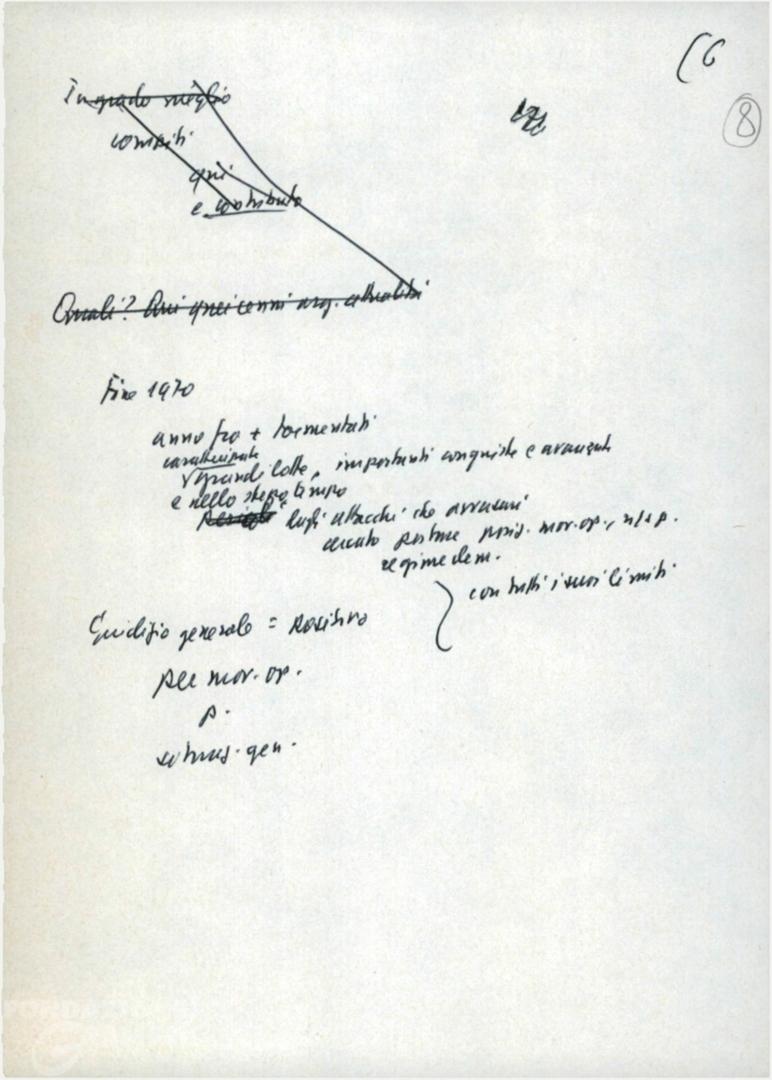 (6
8
In grado meglio
compiti
qui
e contributo
Quali? Qui quei cenni arg. attualità
Fine 1970
anno fra + tormentati
caratterizzato
grandi lotte, importanti conquiste e avanzate
e nello stesso tempo
dagli attacchi che avversari
portare posiz. mov. op., n/s p.
regime dem.
con tutti i suoi limiti
Giudizio generale = positivo
per mov. op.
p.
situaz. gen.